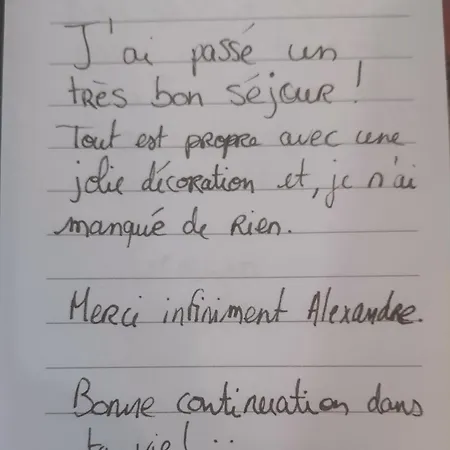 J'ai passé un
très bon séjour !
Tout est propre avec une
jolie décoration et, je n'ai
manqué de rien.
Merci infiniment Alexandre.
Bonne continuation dans
ta vie ! ..